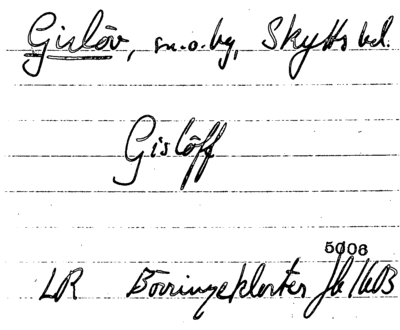 Gislöv, sn.o.by, Skytts hd.
Gislöff
5006
LR Börringekloster Jb 1603